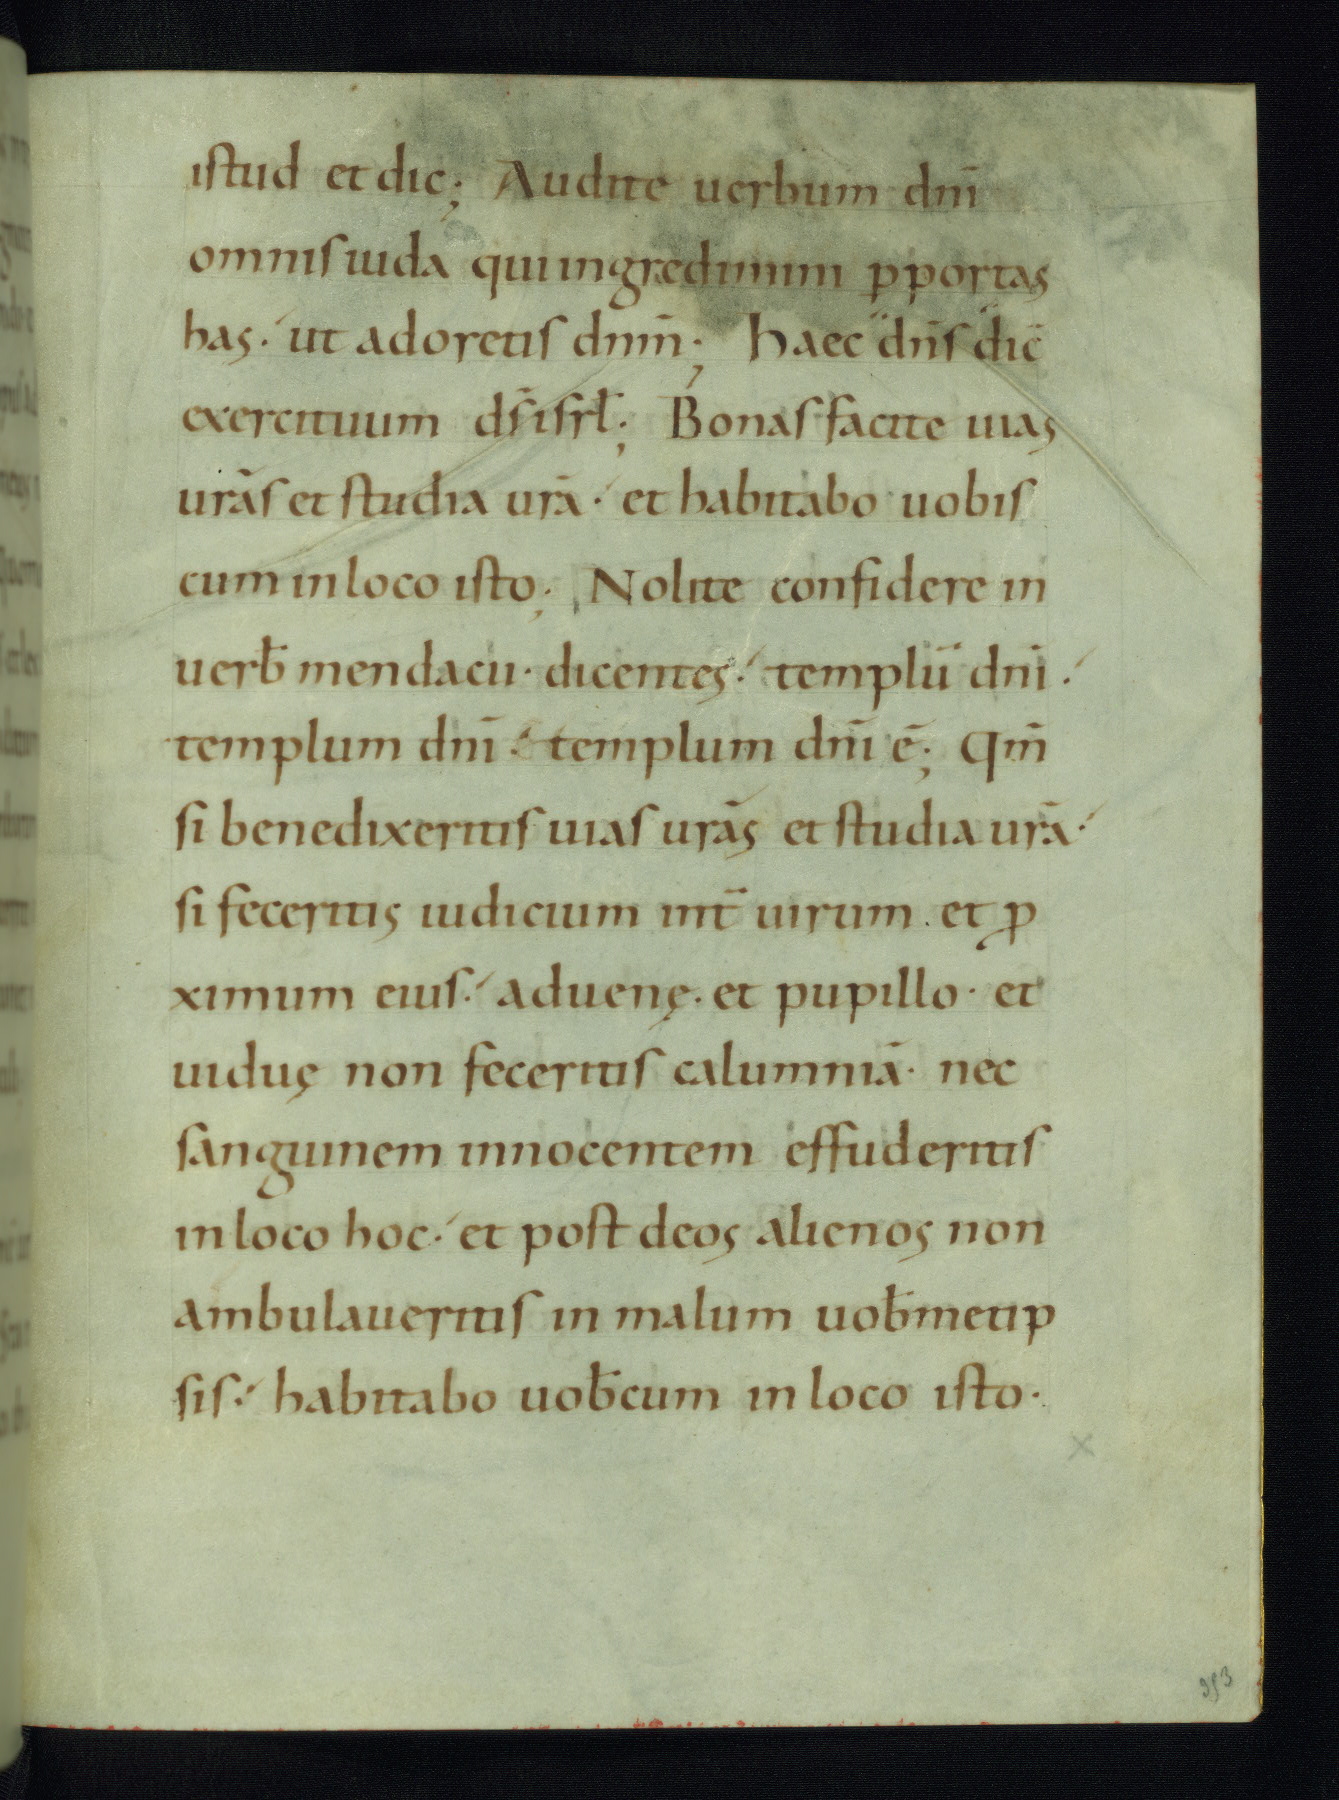 istud et dic; Audite uerbum dnī
omnis iuda qui ingredimini ꝑ portas
has. ut adoretis dnm̄; Haec dn̄s dic̄
exercituum ds̄ isrl̄; Bonas facite uias
urās et studia urā. et habitabo uobis
cum in loco isto; Nolite confidere in
uerb̄ mendacii. dicentes. templū dnī.
templum dnī. templum dnī ē; Qm̄
si benedixeritis uias urās et studia urā.
si feceritis iudicium int̄ uirum. et ꝓ
ximum eius. aduenę. et pupillo. et
uiduę non feceritis calumniā. nec
sanguinem innocentem effuderitis
in loco hoc. et post deos alienos non
ambulaueritis in malum uob̄metip
sis. habitabo uob̄cum in loco isto.
x
953